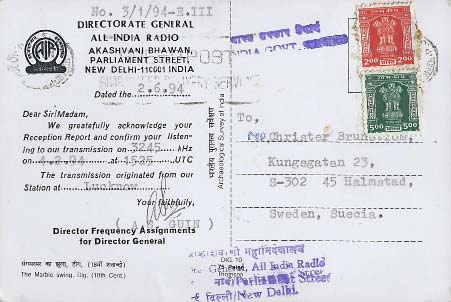 No. 3/1/94-E.III
DIRECTORATE GENERAL
ALL INDIA RADIO
AKASHVANI BHAWAN,
PARLIAMENT STREET,
NEW DELHI-110001 INDIA
Dated the 2.6.94
Dear Sir/Madam,
We gratefully acknowledge your
Reception Report and confirm your listen-
ing to our transmission on 3245 kHz
on 4.2.94 at 1525 UTC
The transmission originated from our
Station at Lucknow
Your faithfully,
( A.K. GUIN )
Director Frequency Assignments
for Director General
The Marble swing, Dig, (18th Cent.)
भारत सरकार सेवार्थ
INDIA GOVT.
2.00 2.00
5.00 5.00
To,
Christer Brunström,
Kungsgatan 23,
S-302 45 Halmstad,
Sweden, Suecia.
DKL 10
Thomson
आकाशवाणी महानिदेशालय
General, All India Radio
Parliament Street
नई दिल्ली/New Delhi.